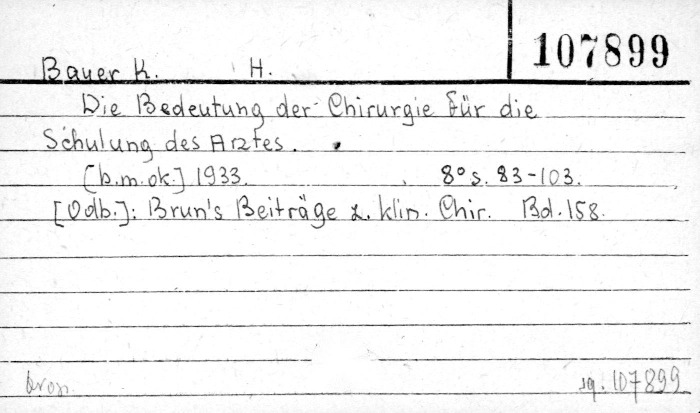 107899
Bauer K. H.
Die Bedeutung der Chirurgie für die
Schulung des Arztes.
[b.m.ok.] 1933. 8° s. 83-103.
[Odb.]: Brun's Beiträge z. klin. Chir. Bd. 158.
brosz. sq. 107899